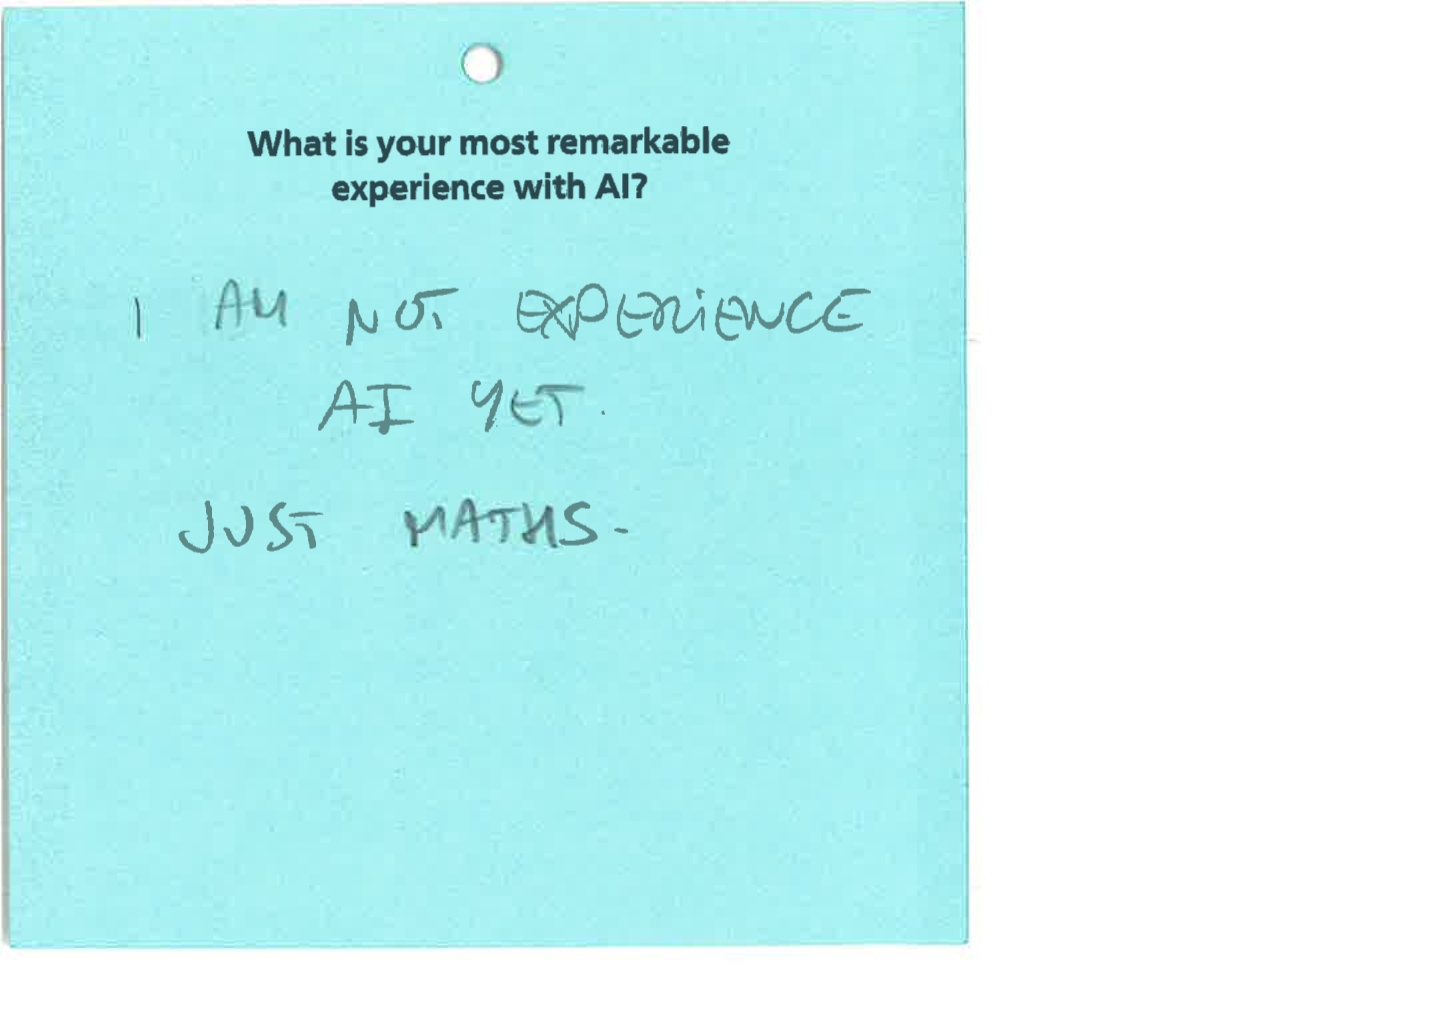 What is your most remarkable
experience with AI?
I AM NOT EXPERIENCE
AI YET.
JUST MATHS.